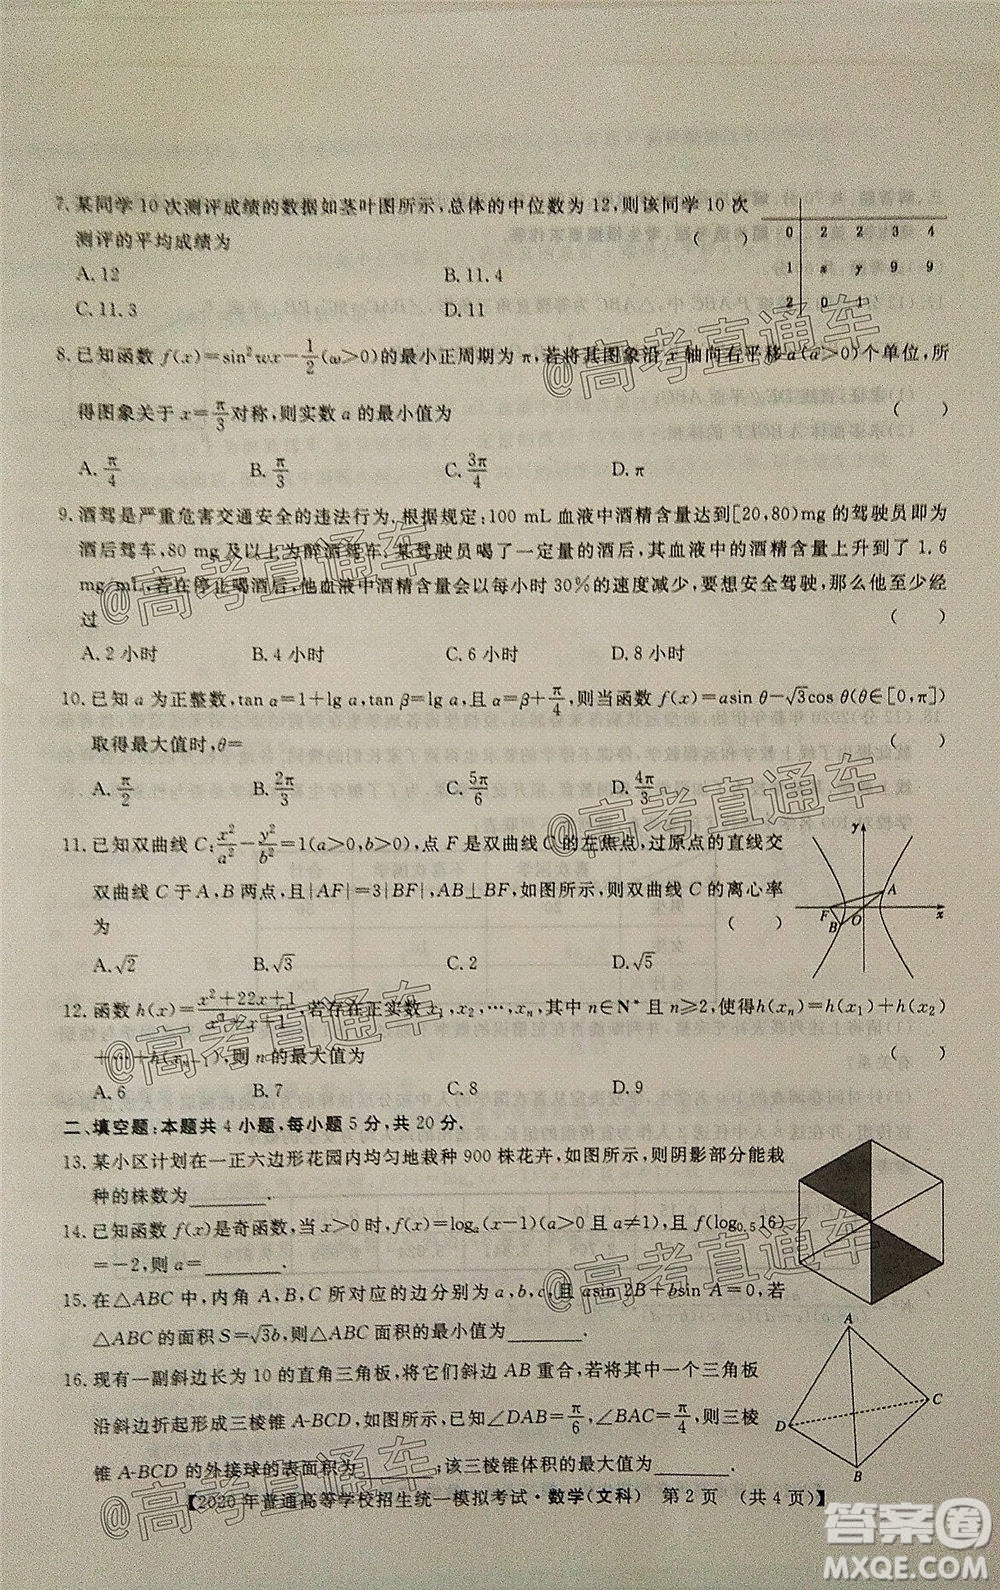 7. 某同学10次测评成绩的数据如茎叶图所示,总体的中位数为12,则该同学10次
测评的平均成绩为 (    )
0 2 2 3 4
1 x y 9 9
2 0 1
A. 12 B. 11.4
C. 11.3 D. 11
8. 已知函数 f(x)=sin²wx-1/2(ω>0)的最小正周期为π,若将其图象沿x轴向右平移a(a>0)个单位,所
得图象关于x=π/3对称,则实数a的最小值为 (    )
A. π/4 B. π/3 C. 3π/4 D. π
9. 酒驾是严重危害交通安全的违法行为,根据规定:100 mL血液中酒精含量达到[20,80)mg的驾驶员即为
酒后驾车,80 mg及以上为醉酒驾车.某驾驶员喝了一定量的酒后,其血液中的酒精含量上升到了1.6
mg/mL,若在停止喝酒后,他血液中酒精含量会以每小时30%的速度减少,要想安全驾驶,那么他至少经
过 (    )
A. 2小时 B. 4小时 C. 6小时 D. 8小时
10. 已知a为正整数,tan α=1+lg a,tan β=lg a,且α=β+π/4,则当函数f(x)=asin θ-√3cos θ(θ∈[0,π])
取得最大值时,θ= (    )
A. π/2 B. 2π/3 C. 5π/6 D. 4π/3
11. 已知双曲线C:x²/a²-y²/b²=1(a>0,b>0),点F是C的左焦点,过原点的直线交
双曲线C于A,B两点,且|AF|=3|BF|,AB⊥BF,如图所示,则双曲线C的离心率
为 (    )
y
A
F
B O x
A. √2 B. √3 C. 2 D. √5
12. 函数h(x)=(x²+22x+1)/(x²+x+1),若存在正实数x₁,x₂,…,xₙ,其中n∈N*且n≥2,使得h(xₙ)=h(x₁)+h(x₂)
+…+h(xₙ₋₁),则n的最大值为 (    )
A. 6 B. 7 C. 8 D. 9
二、填空题:本题共4小题,每小题5分,共20分.
13. 某小区计划在一正六边形花园内均匀地栽种900株花卉,如图所示,则阴影部分能栽
种的株数为________.
14. 已知函数f(x)是奇函数,当x>0时,f(x)=logₐ(x-1)(a>0且a≠1),且f(log₀.₅16)
=-2,则a=________.
15. 在△ABC中,内角A,B,C的对边分别为a,b,c,且asin 2B+bsin A=0,若
△ABC的面积S=√3b,则△ABC面积的最小值为________.
16. 现有一副斜边长为10的直角三角板,将它们斜边AB重合,若将其中一个三角板
沿斜边折起形成三棱锥A-BCD,如图所示,已知∠DAB=π/6,∠BAC=π/4,则三棱
锥A-BCD的外接球的表面积为________;该三棱锥体积的最大值为________.
A
C
D
B
【2020年普通高等学校招生统一模拟考试·数学(文科) 第2页 (共4页)】
@高考直通车
@高考直通车
@高考直通车
@高考直通车
@高考直通车
@高考直通车
@高考直通车
答案圈
MXQE.COM